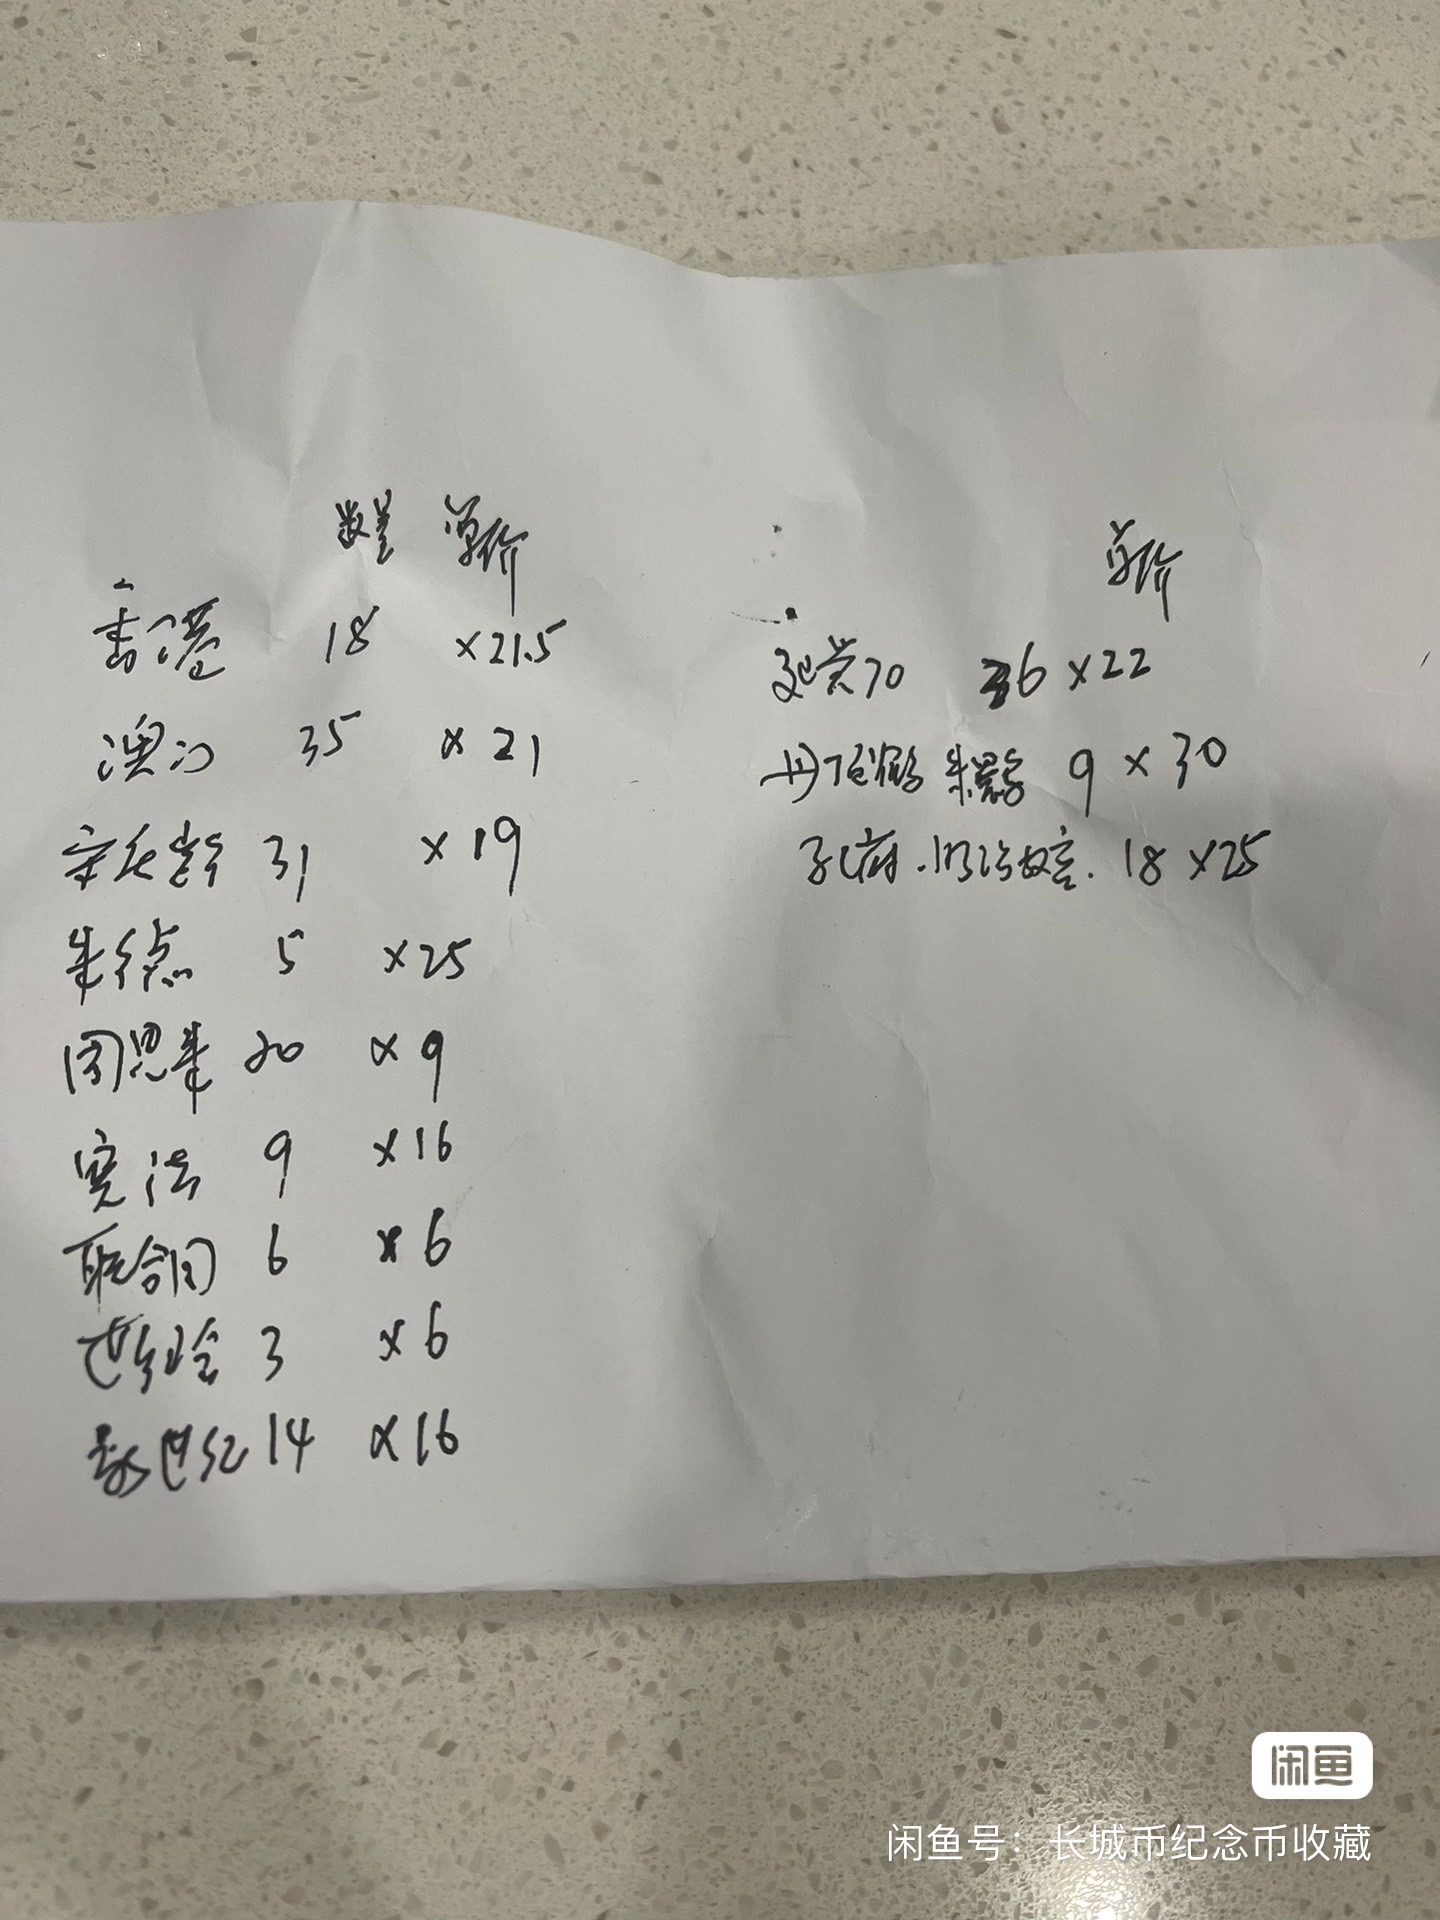 数量 单价
香港 18 ×21.5
澳门 35 ×21
宋庆龄 31 ×19
朱德 5 ×25
周恩来 20 ×9
宪法 9 ×16
联合国 6 ×6
世妇会 3 ×6
新世纪 14 ×16
单价
建党70 36 ×22
丹顶鹤 朱鹮 9 ×30
孔府 . 明清故宫. 18 ×25
闲鱼
闲鱼号：长城币纪念币收藏